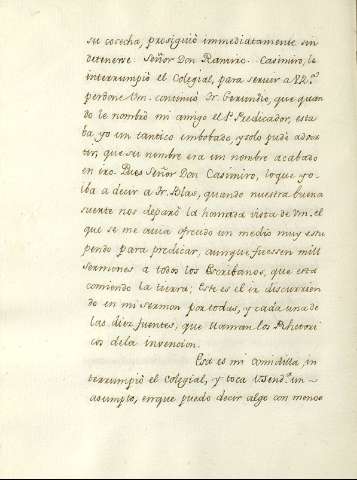 su cosecha, prosiguió immediatamente sin
detenerse Señor Don Ramiro. Casimiro, le
interrumpió el Colegial, para servir a
perdone Vm. continuó Fr. Gerundio, que quan
do le nombró mi amigo el Pe. Predicador, esta
ba yo un tantico embobado, y solo pude adver
tir, que su nombre era un nombre acabado
en iro. Pues Señor Don Casimiro, lo que yo
iba a decir a Fr. Blas, quando nuestra buena
suerte nos deparó la honrada vista de Vm. el
que se me avia ofrecido un medio muy estu
pendo para predicar, aunque fuessen mill
Sermones a todos los Escribanos, que está
comiendo la tierra; Este es el ir discurrien
do en mi sermon por todas, y cada una de
las diez fuentes, que llaman los Rhetori
cos de la invencion.
Esa es mi comidilla, in
terrumpió el Colegial, y toca Vsend.ª un
asumpto, en que puedo decir algo con menos